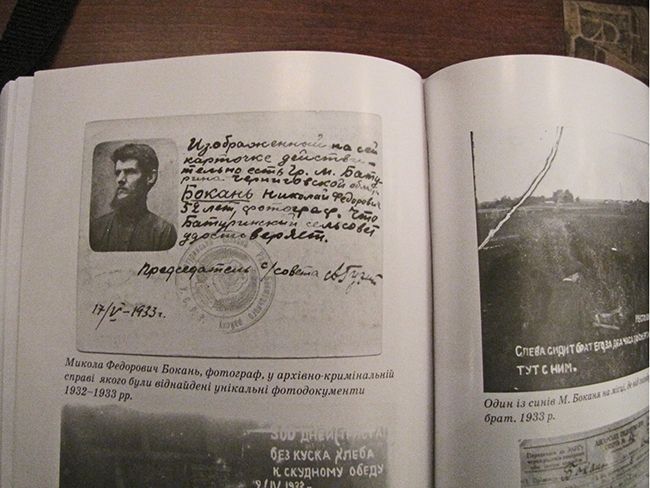 Изображенный на сей
карточке действи-
тельно есть Гр. М. Бату-
рина Черниговской обл.,
Бокань Николай Федорович
52 лет, фотограф. Что
Батуринский сельсовет
удостоверяет.
Председатель с/совета
17/V-1933г.
Микола Федорович Бокань, фотограф, у архівно-кримінальній
справі якого були віднайдені унікальні фотодокументи
1932–1933 рр.
300 ДНЕЙ
БЕЗ КУСКА ХЛЕБА
К СКУДНОМУ ОБЕДУ
2/IV 1932
СЛЕВА СИДИТ БРАТ ЕГО, ЗА ДВА ЧАСА
ТУТ С НИМ.
Один із синів М. Боканя на місці, де
брат. 1933 р.